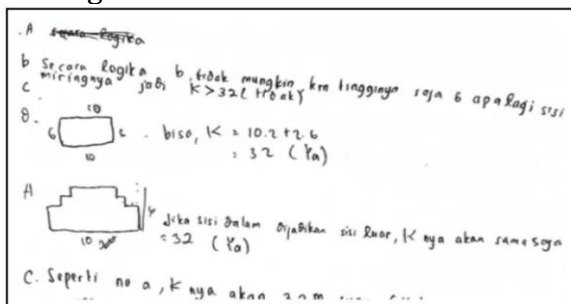 .A
b Secara logika b, tidak mungkin krn tingginya saja 6 apalagi sisi
c miringnya jadi K > 32 (tidak)
10
D.
6
bisa, K = 10.2 + 2.6
10
= 32 (Ya)
A
Jika sisi dalam dijadikan sisi luar, K nya akan sama saja
10
= 32 (Ya)
C. Seperti no a, K nya akan